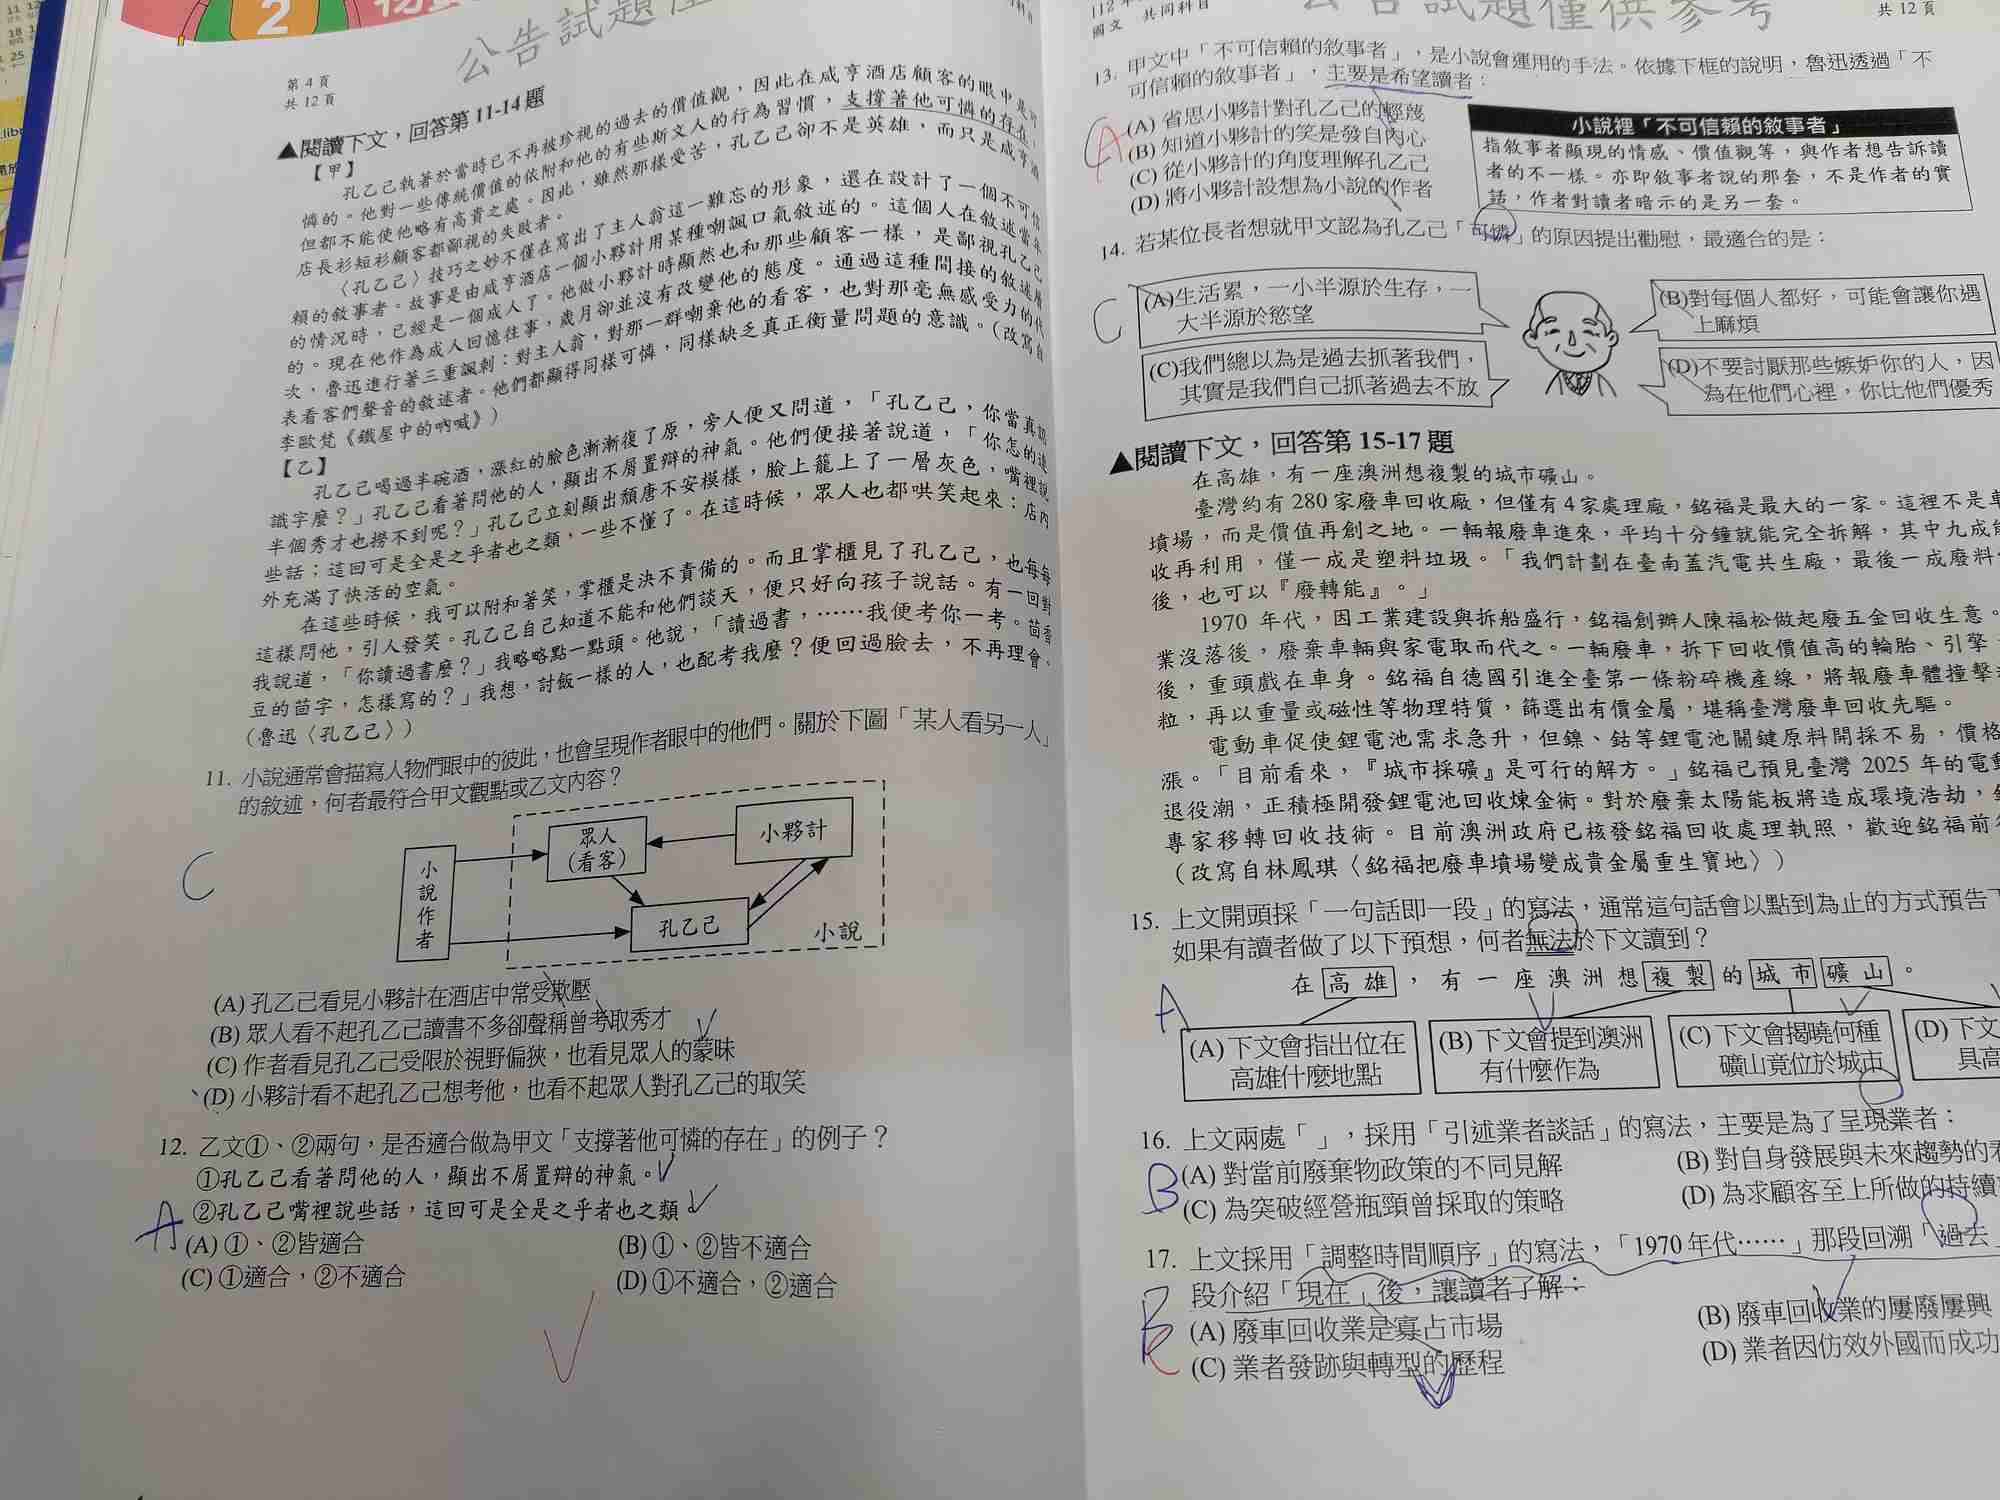 公告試題僅
第 4 頁
共 12 頁
▲閱讀下文，回答第 11-14 題
【甲】
孔乙己執著於當時已不再被珍視的過去的價值觀，因此在咸亨酒店顧客的眼中是可
憐的。他對一些傳統價值的依附和他的有些斯文人的行為習慣，支撐著他可憐的存在，
但都不能使他略有高貴之處。因此，雖然那樣受苦，孔乙己卻不是英雄，而只是咸亨酒
店長衫短衫顧客都鄙視的失敗者。
〈孔乙己〉技巧之妙不僅在寫出了主人翁這一難忘的形象，還在設計了一個不可信
賴的敘事者。故事是由咸亨酒店一個小夥計用某種嘲諷口氣敘述的。這個人在敘述當年
的情況時，已經是一個成人了。他做小夥計時顯然也和那些顧客一樣，是鄙視孔乙己
的。現在他作為成人回憶往事，歲月卻並沒有改變他的態度。通過這種間接的敘述層
次，魯迅進行著三重諷刺：對主人翁，對那一群嘲棄他的看客，也對那毫無感受力的代
表看客們聲音的敘述者。他們都顯得同樣可憐，同樣缺乏真正衡量問題的意識。（改寫自
李歐梵《鐵屋中的吶喊》）
【乙】
孔乙己喝過半碗酒，漲紅的臉色漸漸復了原，旁人便又問道，「孔乙己，你當真認
識字麼？」孔乙己看著問他的人，顯出不屑置辯的神氣。他們便接著說道，「你怎的連
半個秀才也撈不到呢？」孔乙己立刻顯出頹唐不安模樣，臉上籠上了一層灰色，嘴裡說
些話；這回可是全是之乎者也之類，一些不懂了。在這時候，眾人也都哄笑起來：店內
外充滿了快活的空氣。
在這些時候，我可以附和著笑，掌櫃是決不責備的。而且掌櫃見了孔乙己，也每每
這樣問他，引人發笑。孔乙己自己知道不能和他們談天，便只好向孩子說話。有一回對
我說道，「你讀過書麼？」我略略點一點頭。他說，「讀過書，……我便考你一考。茴香
豆的茴字，怎樣寫的？」我想，討飯一樣的人，也配考我麼？便回過臉去，不再理會。
（魯迅〈孔乙己〉）
11. 小說通常會描寫人物們眼中的彼此，也會呈現作者眼中的他們。關於下圖「某人看另一人」
的敘述，何者最符合甲文觀點或乙文內容？
小說作者
眾人
（看客）
小夥計
孔乙己
小說
C
(A) 孔乙己看見小夥計在酒店中常受欺壓
(B) 眾人看不起孔乙己讀書不多卻聲稱曾考取秀才
(C) 作者看見孔乙己受限於視野偏狹，也看見眾人的蒙昧
(D) 小夥計看不起孔乙己想考他，也看不起眾人對孔乙己的取笑
12. 乙文①、②兩句，是否適合做為甲文「支撐著他可憐的存在」的例子？
①孔乙己看著問他的人，顯出不屑置辯的神氣。
②孔乙己嘴裡說些話，這回可是全是之乎者也之類
A
(A) ①、②皆適合
(B) ①、②皆不適合
(C) ①適合，②不適合
(D) ①不適合，②適合
公告試題僅供參考
國文 共同科目
共 12 頁
13. 甲文中「不可信賴的敘事者」，是小說會運用的手法。依據下框的說明，魯迅透過「不
可信賴的敘事者」，主要是希望讀者：
(A) 省思小夥計對孔乙己的輕蔑
(B) 知道小夥計的笑是發自內心
(C) 從小夥計的角度理解孔乙己
(D) 將小夥計設想為小說的作者
小說裡「不可信賴的敘事者」
指敘事者顯現的情感、價值觀等，與作者想告訴讀
者的不一樣。亦即敘事者說的那套，不是作者的實
話，作者對讀者暗示的是另一套。
14. 若某位長者想就甲文認為孔乙己「可憐」的原因提出勸慰，最適合的是：
C
(A)生活累，一小半源於生存，一
大半源於慾望
(B)對每個人都好，可能會讓你遇
上麻煩
(C)我們總以為是過去抓著我們，
其實是我們自己抓著過去不放
(D)不要討厭那些嫉妒你的人，因
為在他們心裡，你比他們優秀
▲閱讀下文，回答第 15-17 題
在高雄，有一座澳洲想複製的城市礦山。
臺灣約有 280 家廢車回收廠，但僅有 4 家處理廠，銘福是最大的一家。這裡不是車
墳場，而是價值再創之地。一輛報廢車進來，平均十分鐘就能完全拆解，其中九成能
收再利用，僅一成是塑料垃圾。「我們計劃在臺南蓋汽電共生廠，最後一成廢料
後，也可以『廢轉能』。」
1970 年代，因工業建設與拆船盛行，銘福創辦人陳福松做起廢五金回收生意。
業沒落後，廢棄車輛與家電取而代之。一輛廢車，拆下回收價值高的輪胎、引擎
後，重頭戲在車身。銘福自德國引進全臺第一條粉碎機產線，將報廢車體撞擊
粒，再以重量或磁性等物理特質，篩選出有價金屬，堪稱臺灣廢車回收先驅。
電動車促使鋰電池需求急升，但鎳、鈷等鋰電池關鍵原料開採不易，價格
漲。「目前看來，『城市採礦』是可行的解方。」銘福已預見臺灣 2025 年的電動
退役潮，正積極開發鋰電池回收煉金術。對於廢棄太陽能板將造成環境浩劫，
專家移轉回收技術。目前澳洲政府已核發銘福回收處理執照，歡迎銘福前
（改寫自林鳳琪〈銘福把廢車墳場變成貴金屬重生寶地〉）
15. 上文開頭採「一句話即一段」的寫法，通常這句話會以點到為止的方式預告
如果有讀者做了以下預想，何者無法於下文讀到？
在高雄，有一座澳洲想複製的城市礦山。
A
(A) 下文會指出位在
高雄什麼地點
(B) 下文會提到澳洲
有什麼作為
(C) 下文會揭曉何種
礦山竟位於城市
(D) 下文
具高
16. 上文兩處「 」，採用「引述業者談話」的寫法，主要是為了呈現業者：
B
(A) 對當前廢棄物政策的不同見解
(B) 對自身發展與未來趨勢的
(C) 為突破經營瓶頸曾採取的策略
(D) 為求顧客至上所做的持續
17. 上文採用「調整時間順序」的寫法，「1970 年代……」那段回溯「過去」
段介紹「現在」後，讓讀者了解：
B
C
(A) 廢車回收業是寡占市場
(B) 廢車回收業的屢廢屢興
(C) 業者發跡與轉型的歷程
(D) 業者因仿效外國而成功